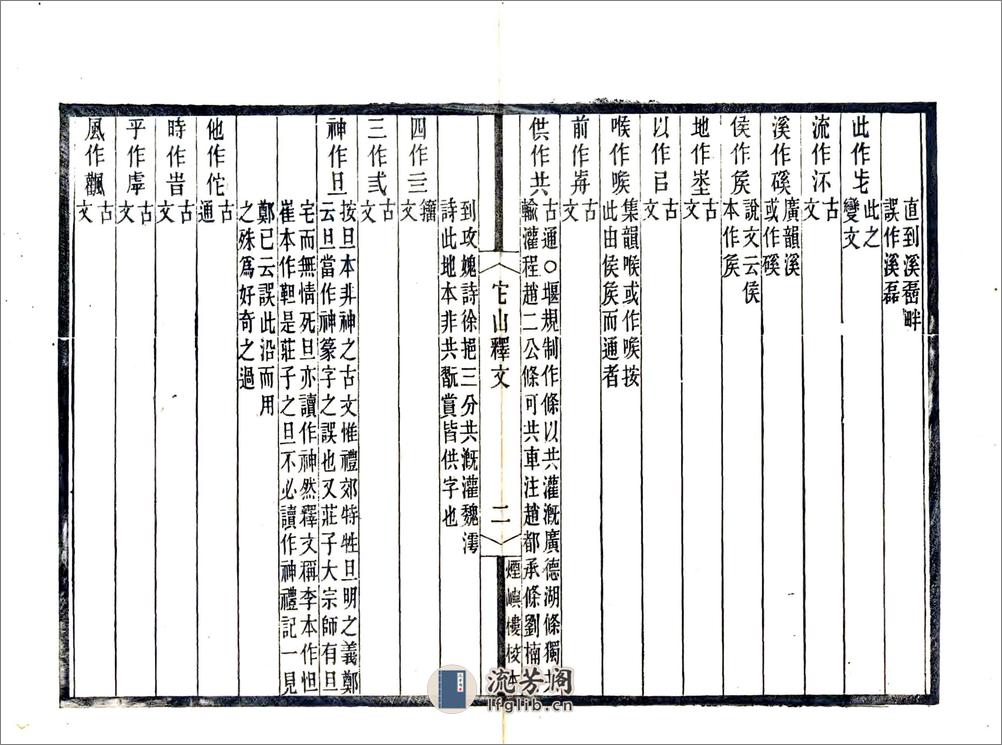 直到溪磊畔
誤作溪磊
此作㞢此之
變文
流作㳅古
文
溪作磎廣韻溪
或作磎
侯作矦說文云侯
本作矦
地作埊古
文
以作㠯古
文
喉作㗋集韻喉或作㗋按
此由侯矦而通者
前作歬古
文
供作共古通○堰規制作條以共灌溉廣德湖條獨
輸灌程趙二公條可共車注趙都承條劉楠
它山釋文
二
煙嶼樓校本
到攻媿詩徐挹三分共溉灌魏
詩此地本非共翫賞皆供字也
四作亖籀
文
三作弎古
文
神作旦按旦本非神之古文惟禮郊特牲旦明之義鄭
云旦當作神篆字之誤也又莊子大宗師有旦
宅而無情死旦亦讀作神然釋文稱李本作怛
崔本作靼是莊子之旦不必讀作神禮記一見
鄭已云誤此沿而用
之殊爲好奇之過
他作佗古
通
時作旹古
文
乎作虖古
文
風作飌古
文
流芳阁
lfglib.cn